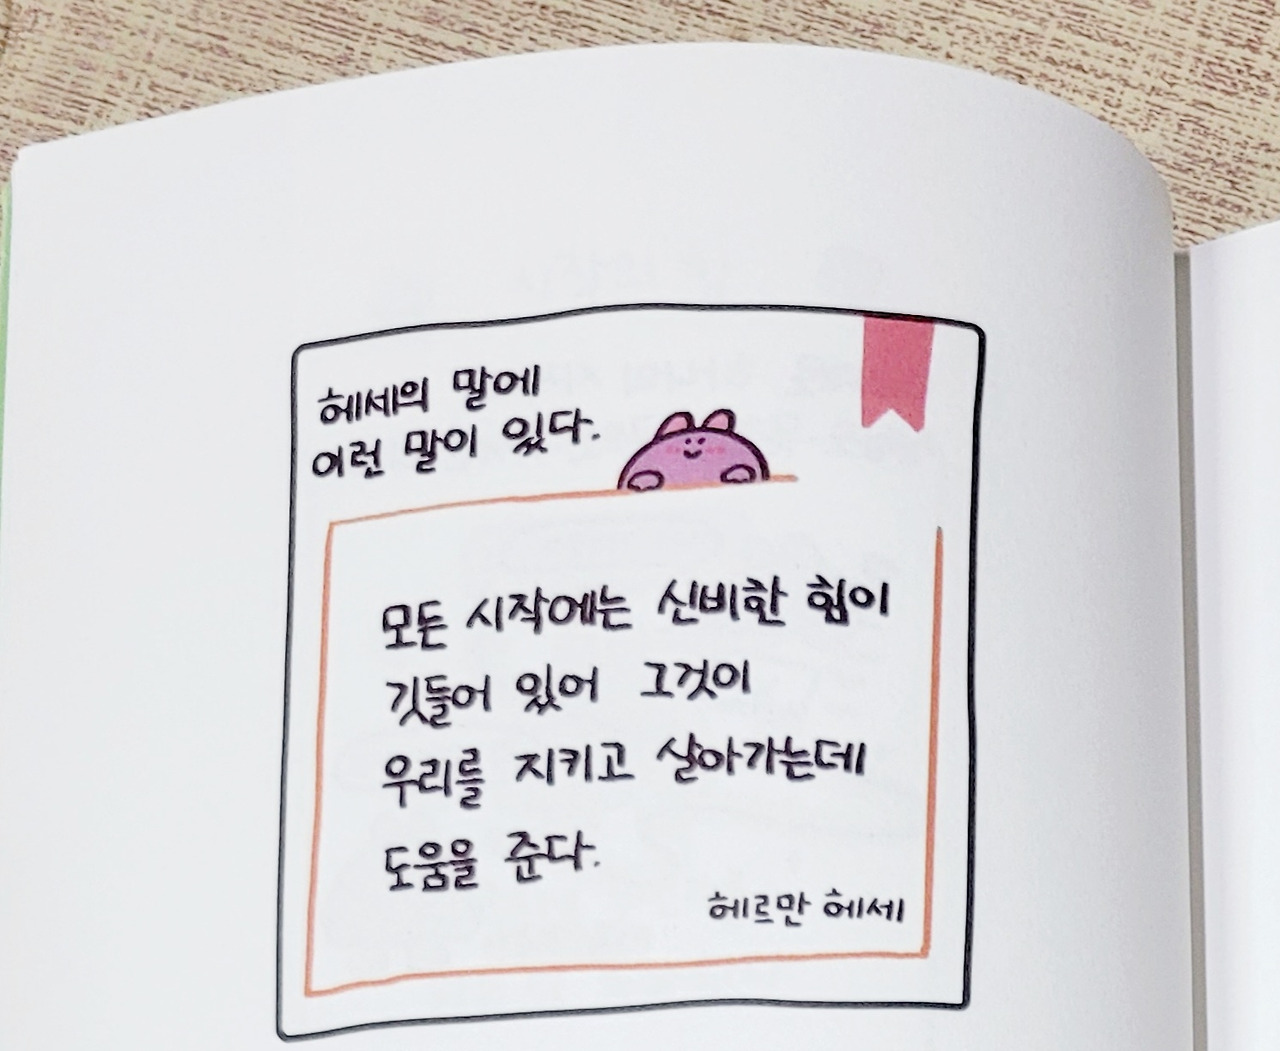 헤세의 말에
이런 말이 있다.
모든 시작에는 신비한 힘이
깃들어 있어 그것이
우리를 지키고 살아가는데
도움을 준다.
헤르만 헤세